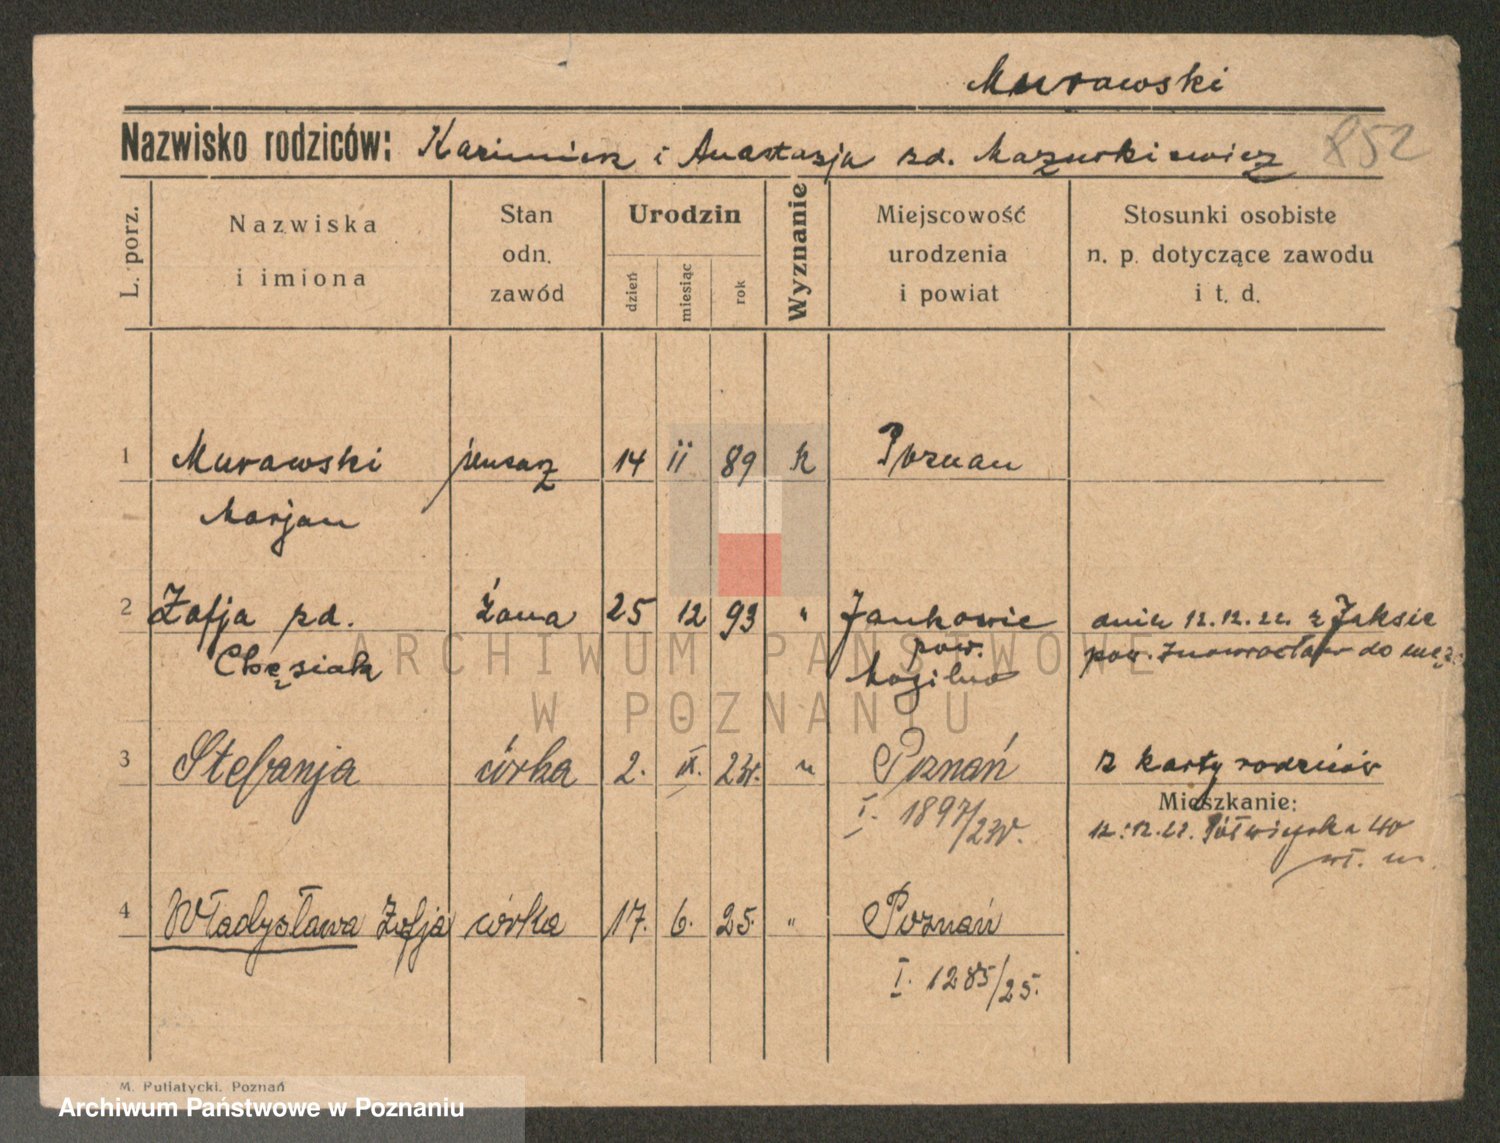 Murawski
Nazwisko rodziców: Kazimierz i Anastazja zd. Mazurkiewicz 852
L. porz.
Nazwiska
i imiona
Stan
odn.
zawód
Urodzin
dzień
miesiąc
rok
Wyznanie
Miejscowość
urodzenia
i powiat
Stosunki osobiste
n. p. dotyczące zawodu
i t. d.
1 Murawski 14 ii 89 k Poznan
Marjan
2 Zofja zd. żona 25 12 93 " Jankowie
pow.
Mogilno
dnia 12.12.22. z Jaksic
pow. Inowrocław do męż.
3 Stefanja córka 2. IX. 23r. " Poznań
I. 1897/23r.
z karty rodziców
Mieszkanie:
12.12.22. Półwiejska 40
wł. m.
4 Władysława Zofja córka 17. 6. 25. " Poznań
I. 1285/25.
ARCHIWUM PAŃSTWOWE
W POZNANIU
M. Putiatycki, Poznań
Archiwum Państwowe w Poznaniu